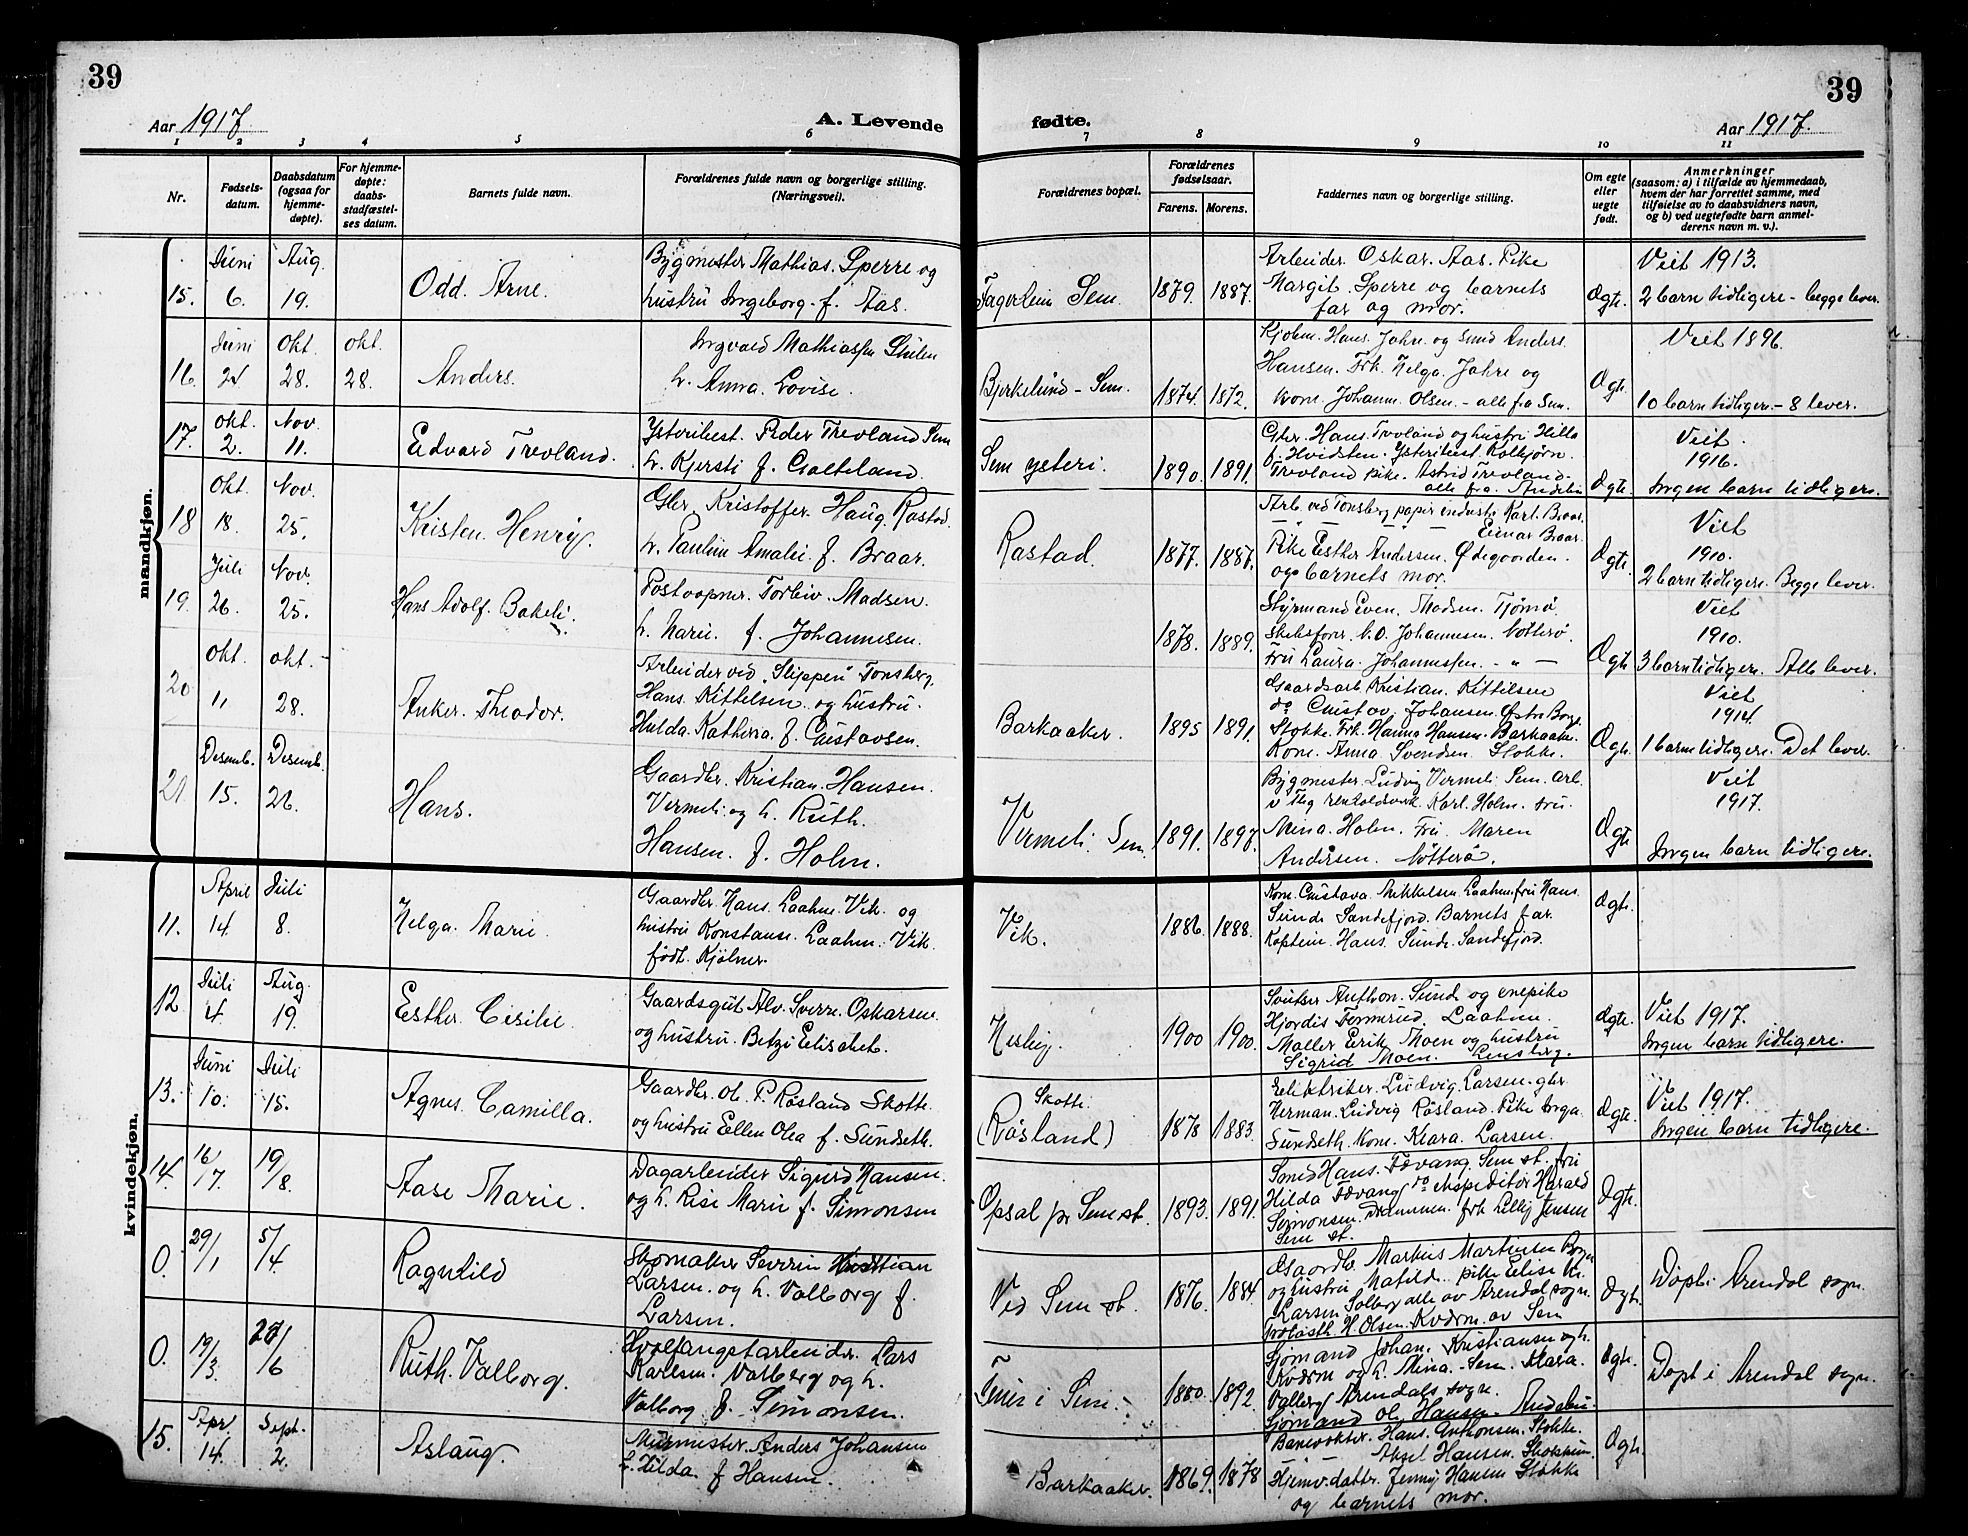 39
Aar 1917.
A. Levende
1 2 3 4 5 6
Nr.
Fødsels-
datum.
Daabsdatum
(ogsaa for
hjemme-
døpte).
For hjemme-
døpte:
daabs-
stadfæstel-
ses datum.
Barnets fulde navn.
Forældrenes fulde navn og borgerlige stilling.
(Næringsvei).
mandkjøn.
15. Juni 6. Aug. 19. Odd. Arne.
Bygmester Mathias. Sperre og
hustru Ingeborg. f. Aas.
16. Juni 24 Okt. 28. okt. 28. Anders.
Ingvald Mathiassen
h. Anna. Lovise.
17. Okt. 2. Nov. 11. Edvard Trevland.
Ysteribest. Peder Trevland Sem
h. Kjersti f.
18 Okt. 18. Nov. 25. Kristen. Henry.
Gbr. Kristoffer. Haug. Rastad.
h. Pauline Amalie f. Braar.
19. Juli 26. Nov. 25. Hans Adolf. Bakeli.
Postaapner. Torleiv. Madsen.
h. Marie. f. Johannesen.
20 Okt. 11 okt. 28. Anker. Theodor.
Arbeider ved "Slippen" Tønsberg.
Hans. Kittelsen og hustru.
Hulda. Kathinka. f. Gustavsen.
21 Desemb. 15. Desemb. 26. Hans.
Gaardbr. Kristian. Hansen.
Virmeli og h. Ruth.
Hansen. f. Holm.
kvindekjøn.
11. April 14. Juli 8. Helga. Marie.
Gaardbr. Hans. Laahne. Vik. og
hustru Konstanse. Laahne. Vik.
født. Kjølner.
12. Juli 4. Aug. 19. Esther. Cisilie.
Gaardsgut Alv. Sverre. Oskarsen.
og hustru. Betzi Elisabet.
13. Juni 10. Juli 15. Agnes. Camilla.
Gaardbr. Ole P. Røsland Skotte.
og hustru Ellen Olea f. Sundseth.
14. 16/7. 19/8. Aase Marie.
Dagarbeider Sigurd Hansen.
og h. Lise Marie f. Simonsen
0. 29/1 5/4. Ragnhild
Skomaker Severin Kristian
Larsen. og h. Valborg f.
Larsen.
0. 19/3. 24/6 Ruth. Valborg.
Hvalfangstarbeider. Lars
Karlsen. Valberg og h.
Valborg f. Simonsen.
15. Apr. 14. Sept. 2. Aslaug.
Murmester. Anders Johansen
h. Hilda. f Hansen.
39
fødte.
Aar 1917.
7 8 9 10 11
Forældrenes bopæl.
Forældrenes
fødselsaar.
Farens. Morens.
Faddernes navn og borgerlige stilling.
Om egte
eller
uegte
født.
Anmerkninger
(saasom: a) i tilfælde av hjemmedaab,
hvem der har forrettet samme, med
tilføielse av to daabsvidners navn,
og b) ved uegtefødte barn anmel-
derens navn m. v.).
Fagerheim Sem. 1879. 1887.
Arbeider. Oskar. Aas. Pike
Margit. Sperre og barnets
far og mor.
Ægte. Viet 1913.
2 barn tidligere – begge lever.
Bjerkelund – Sem. 1874. 1872.
Kjøbm. Hans. Jahre. og Smed Anders.
Hansen. Frk. Helga. Jahre og
kone. Johanne. Olsen. – alle fra Sem.
Ægte. Viet 1896.
10 barn tidligere. – 8 lever.
Sem ysteri. 1890. 1891.
Gbr. Hans. Trevland og hustru Hilla
f. Hvidsten. Ysteribest. Kolbjørn.
Trevland pike. Astrid Trevland.
alle fra. Andebu
Ægte. Viet.
1916.
Ingen barn tidligere.
Rastad. 1877. 1887.
Arb. ved Tønsberg papir industri Karl. Braar.
– " – " – Einar Braar.
Pike Esther Andersen. Ødegaarden.
og barnets mor.
Ægte. Viet
1910.
2 barn tidligere. Begge lever.
1878. 1889.
Styrmand Even. Madsen. Tjømø.
Skibsfører. N. O. Johannesen. Nøtterø.
Fru Laura. Johannessen. – " –
Ægte Viet
1910.
3 barn tidligere. Alle lever.
Barkaaker. 1895 1891.
Gaardsarb. Kristian. Kittilsen
do Gustav. Johansen. Østre Borge.
Stokke. Frk. Hanna Hansen. Barkaaker.
Kone. Anna. Svendsen. Stokke.
Ægte. Viet
1914.
1 barn tidligere. Det lever.
Virmeli. Sem. 1891. 1897.
Bygmester. Ludvig Virmeli. Sem. arb.
v Tbg renholdsverk Karl. Holm. fru.
Mina. Holm. Fru. Maren
Andersen. Nøtterø.
Ægte Viet
1917.
Ingen barn tidligere.
Vik. 1886. 1888.
Kone. Gustava Mikkelsen. Laahne fru Hans.
Sunde Sandefjord. Barnets far.
Kaptein. Hans. Sunde. Sandefjord.
Ægte.
Hesby. 1900 1900.
Sveitser Anthon. Sund og enepike
Hjørdis Laahne.
Møller Erik Moen og hustru
Sigrid Moen. Tønsberg.
Ægte. Viet 1917.
Ingen barn tidligere.
Skotte.
(Røsland) 1878 1883.
Elektriker. Ludvig. Larsen. gbr.
Herman. Ludvig Røsland. Pike Inga.
Sundseth. Kone. Klara. Larsen.
Ægte. Viet 1917.
Ingen barn tidligere.
Opsal pr Sem st. 1893. 1891.
Smed Hans. Fevang. Sem st. fru
Hilda Fevang do ekspeditør Harald
Simonsen. Drammen. frk Lilly Jensen
Sem st.
Ægte.
Ved Sem st. 1876. 1884.
Gaardbr. Markus Martinsen
og hustru Matilde. pike Elise
Larsen Solberg alle av Arendal sogn.
H. Olsen. Kværne. av Sem
Ægte. Døpt i Arendal sogn.
i Sem. 1880. 1892.
Sjømand Johan. Kristiansen og h.
Kværne og h. Mina. Sem. Klara.
Valberg Arendals sogn.
Sjømand Ole Hansen. Andebu.
Ægte. Døpt i Arendal sogn.
Barkaaker. 1869. 1878
Banevokter. Hans. Anthonsen. Stokke.
– " – Aksel Hansen.
Hjemv. datter. Jenny Hansen Stokke
og barnets mor.
Ægte.